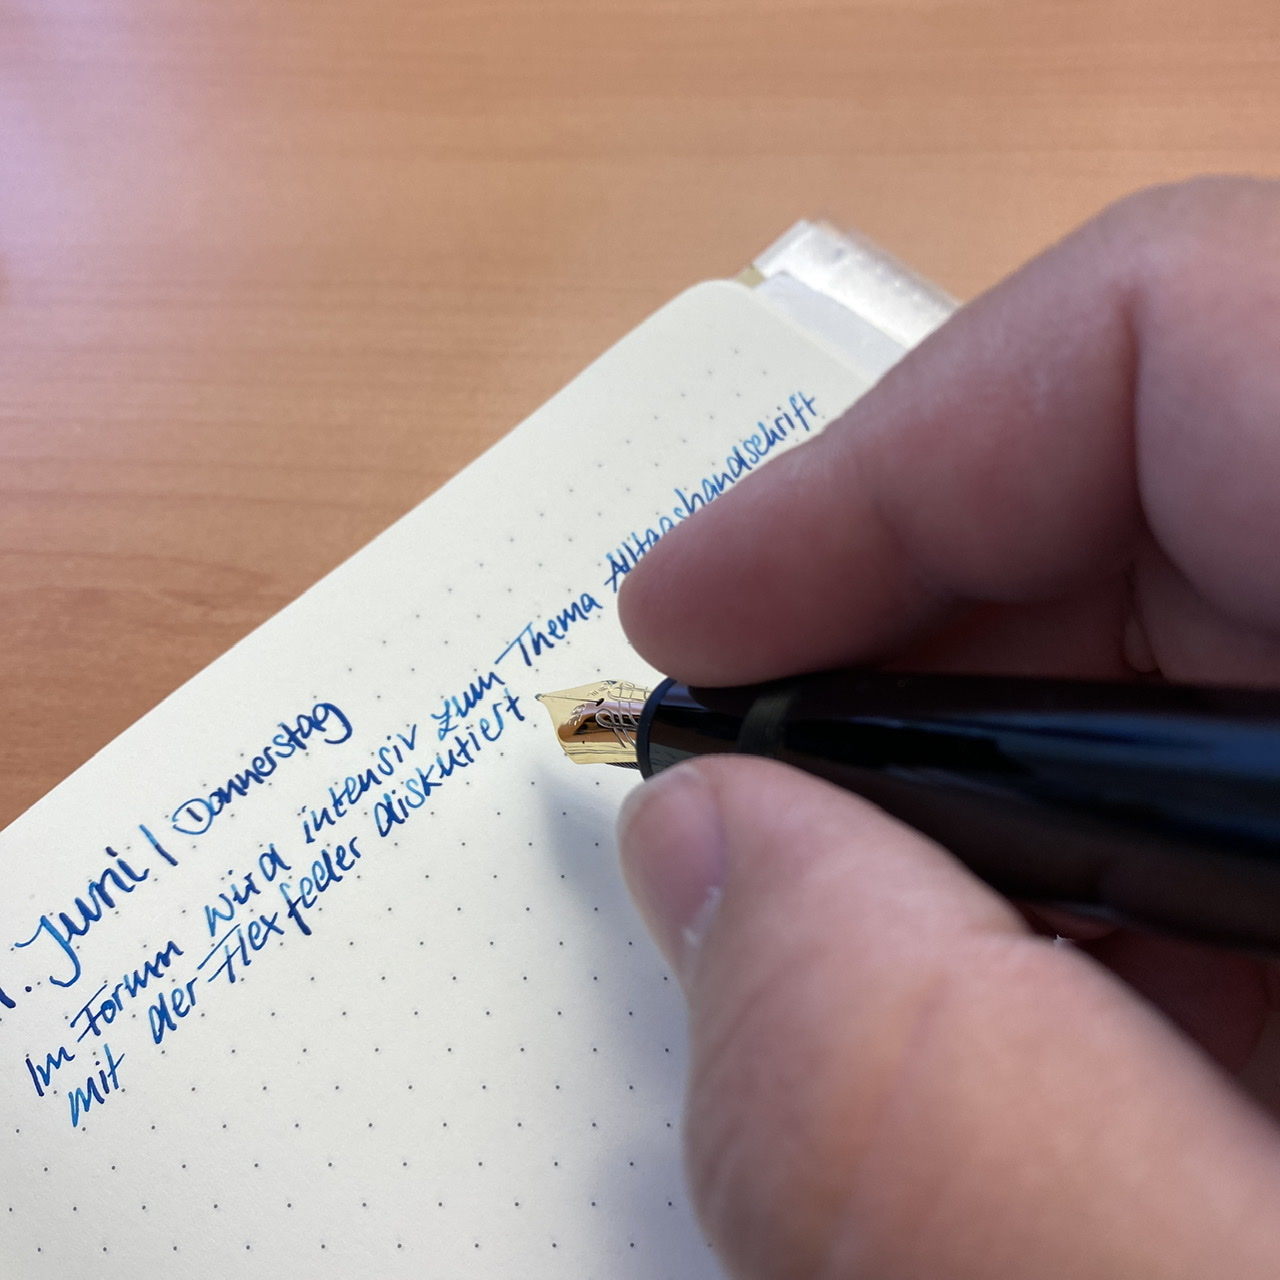 . Juni | Donnerstag
Im Forum wird intensiv zum Thema Alltagshandschrift
mit der Flexfeder diskutiert